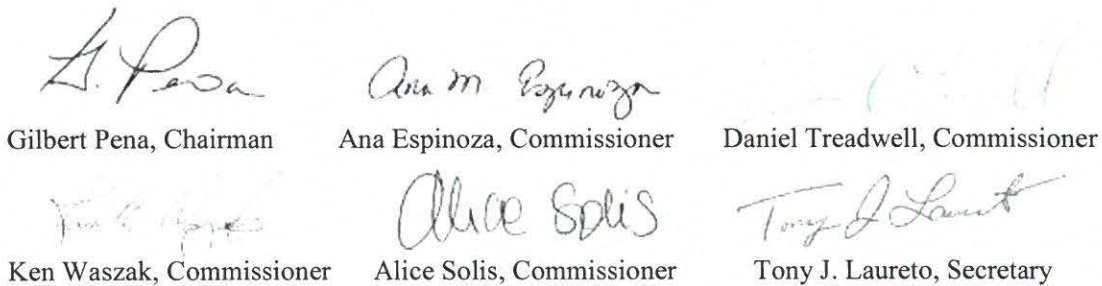 G. Pena Ana M Espinoza
Gilbert Pena, Chairman Ana Espinoza, Commissioner Daniel Treadwell, Commissioner
Alice Solis Tony J Laureto
Ken Waszak, Commissioner Alice Solis, Commissioner Tony J. Laureto, Secretary